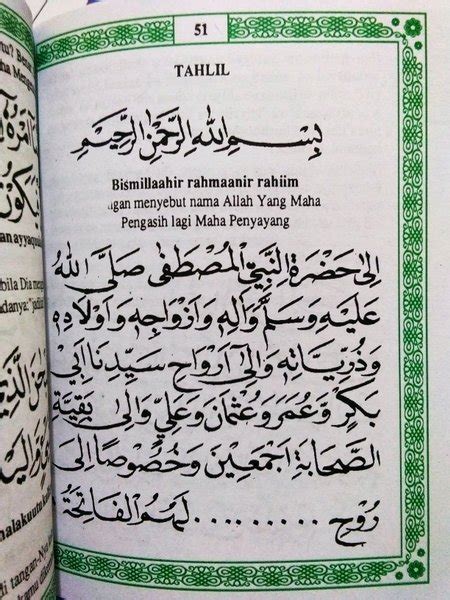 51
TAHLIL
بِسْمِ اللهِ الرَّحْمٰنِ الرَّحِيْمِ
Bismillaahir rahmaanir rahiim
ngan menyebut nama Allah Yang Maha
Pengasih lagi Maha Penyayang
اِلىٰ حَضْرَةِ النَّبِيِّ الْمُصْطَفٰى صَلَّى اللهُ
عَلَيْهِ وَسَلَّمَ وَآلِهِ وَأَزْوَاجِهِ وَأَوْلَادِهِ
وَذُرِّيَّاتِهِ وَاِلىٰ أَرْوَاحِ سَيِّدِنَا اَبِيْ
بَكْرٍ وَعُمَرَ وَعُثْمَانَ وَعَلِيٍّ وَاِلىٰ بَقِيَّةِ
الصَّحَابَةِ اَجْمَعِيْنَ وَخُصُوْصًا اِلىٰ
رُوْحِ ......... لَهُمُ الْفَاتِحَةُ